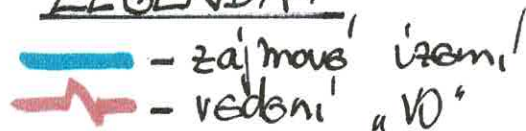 LEGENDA:
- zájmové území
- vedení „VO“